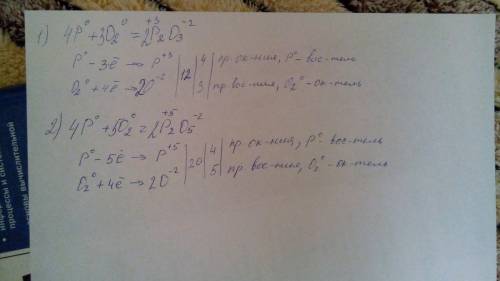 1) 4P⁰ + 3O₂⁰ = 2P₂⁺³O₃⁻²
P⁰ - 3ē → P⁺³ | 12 | 4 | пр. ок-ния, P⁰ - вос-тель
O₂⁰ + 4ē → 2O⁻² | 3 | пр. вос-ния, O₂⁰ - ок-тель
2) 4P⁰ + 5O₂⁰ = 2P₂⁺⁵O₅⁻²
P⁰ - 5ē → P⁺⁵ | 20 | 4 | пр. ок-ния, P⁰ - вос-тель
O₂⁰ + 4ē → 2O⁻² | 5 | пр. вос-ния, O₂⁰ - ок-тель
процессы и систем
вычислительной